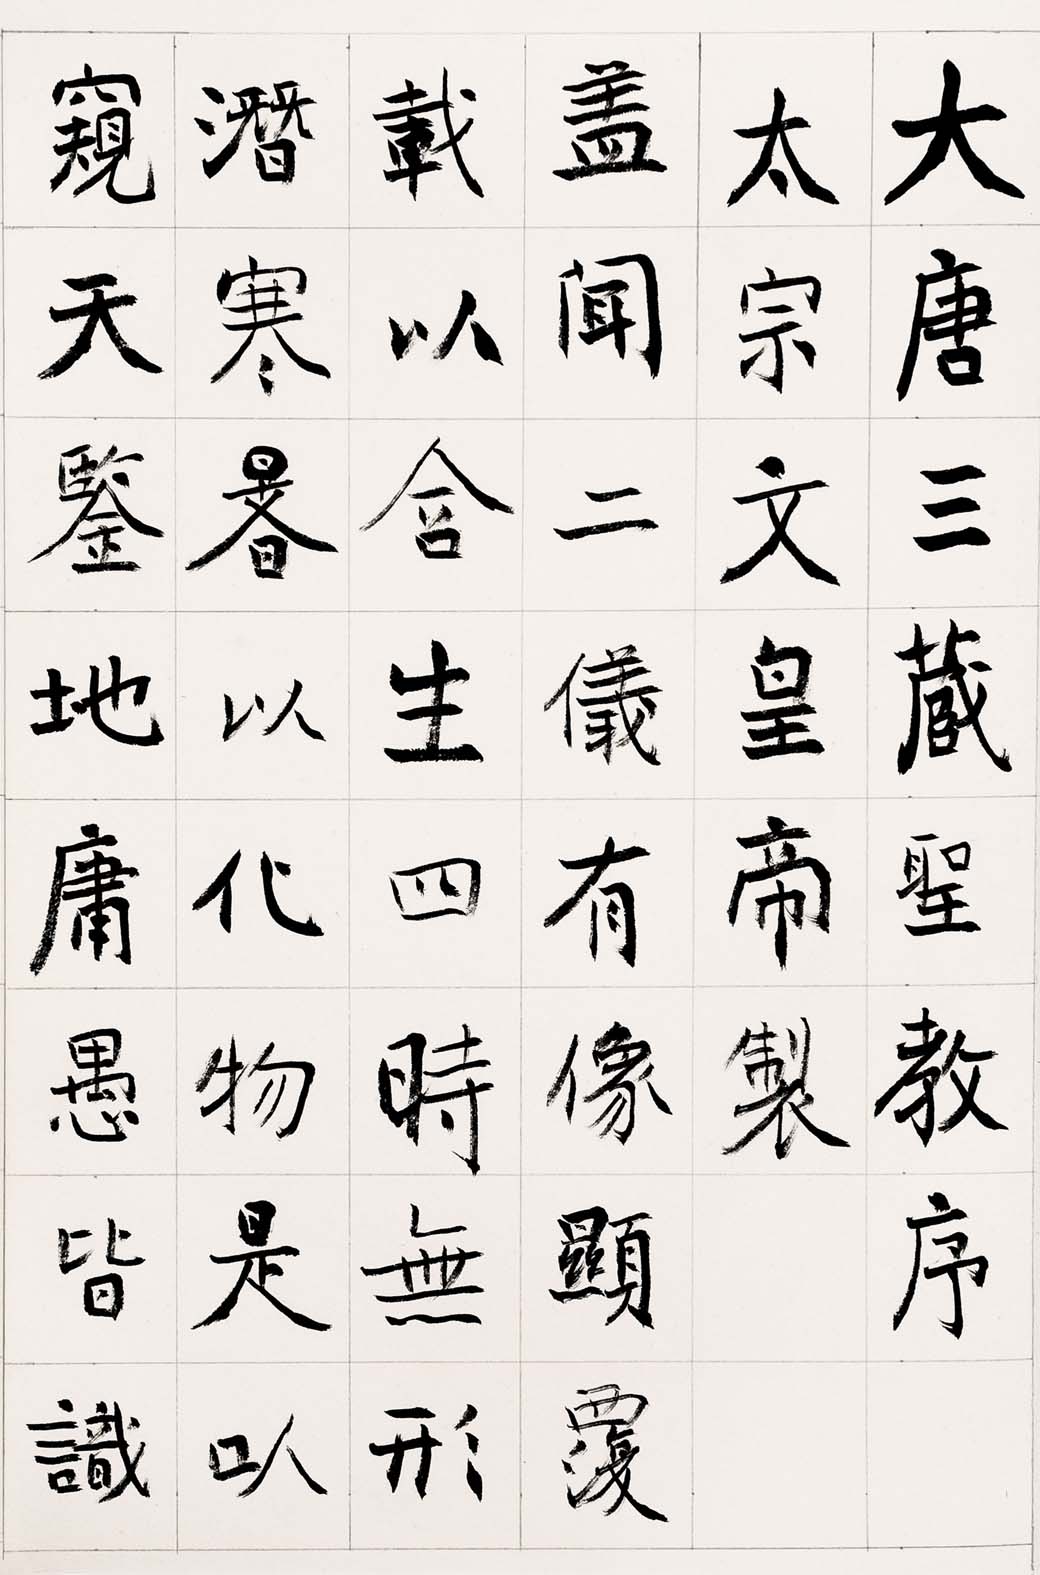 大唐三蔵聖教序
太宗文皇帝製
盖聞二儀有像顯覆
載以含生四時無形
潛寒暑以化物是以
窺天鑒地庸愚皆識